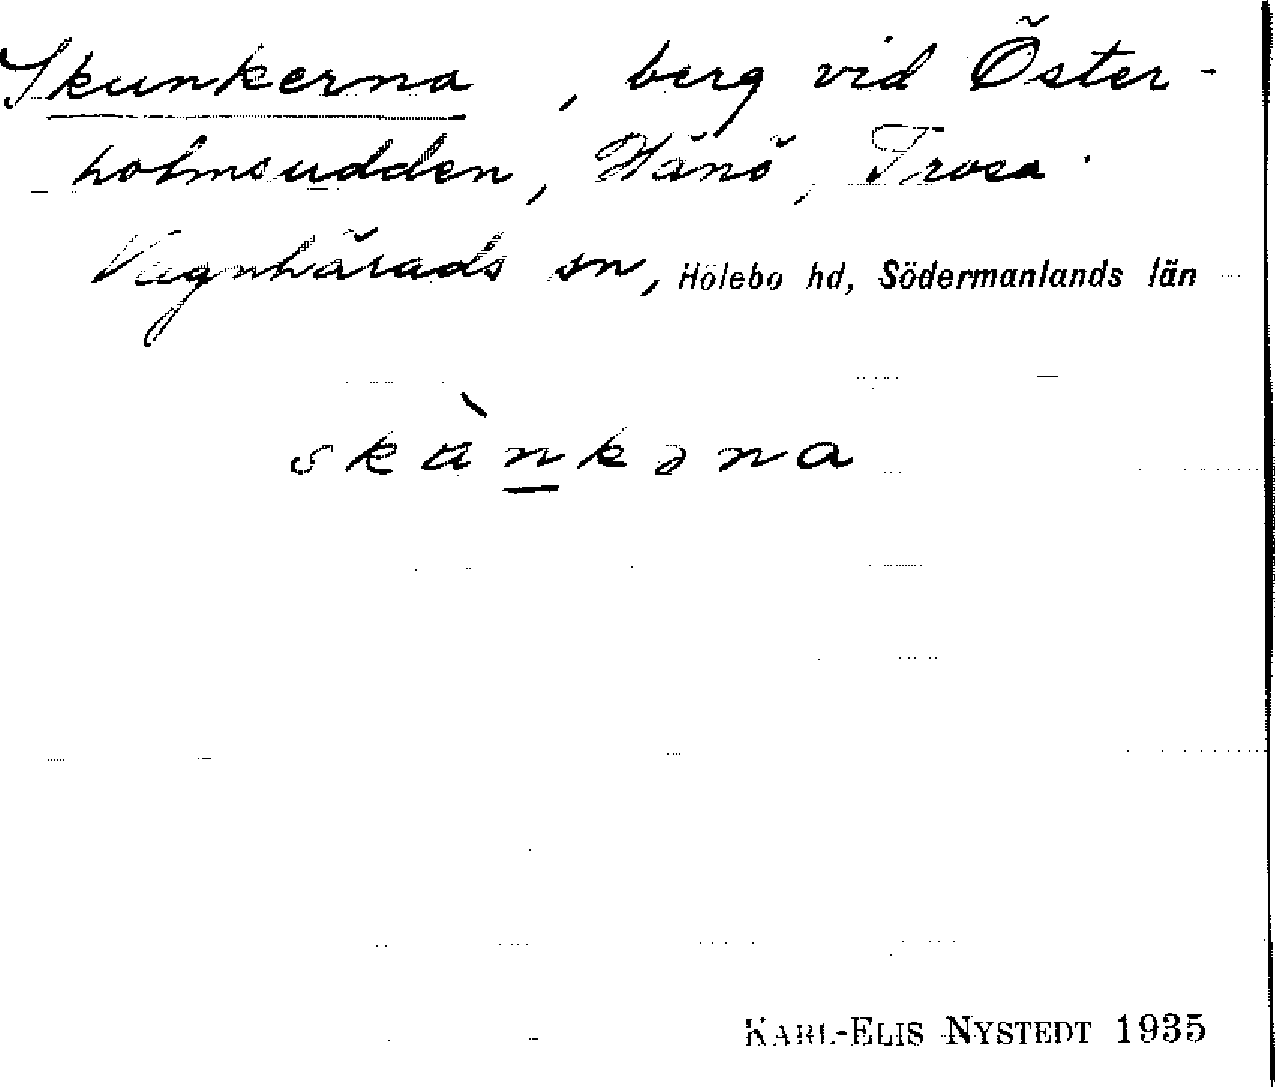 Skunkerna, berg vid Öster-
holmsudden, Hänö, Trosa-
Vagnhärads sn, Hölebo hd, Södermanlands län
skùnkəna
KARL-ELIS NYSTEDT 1935